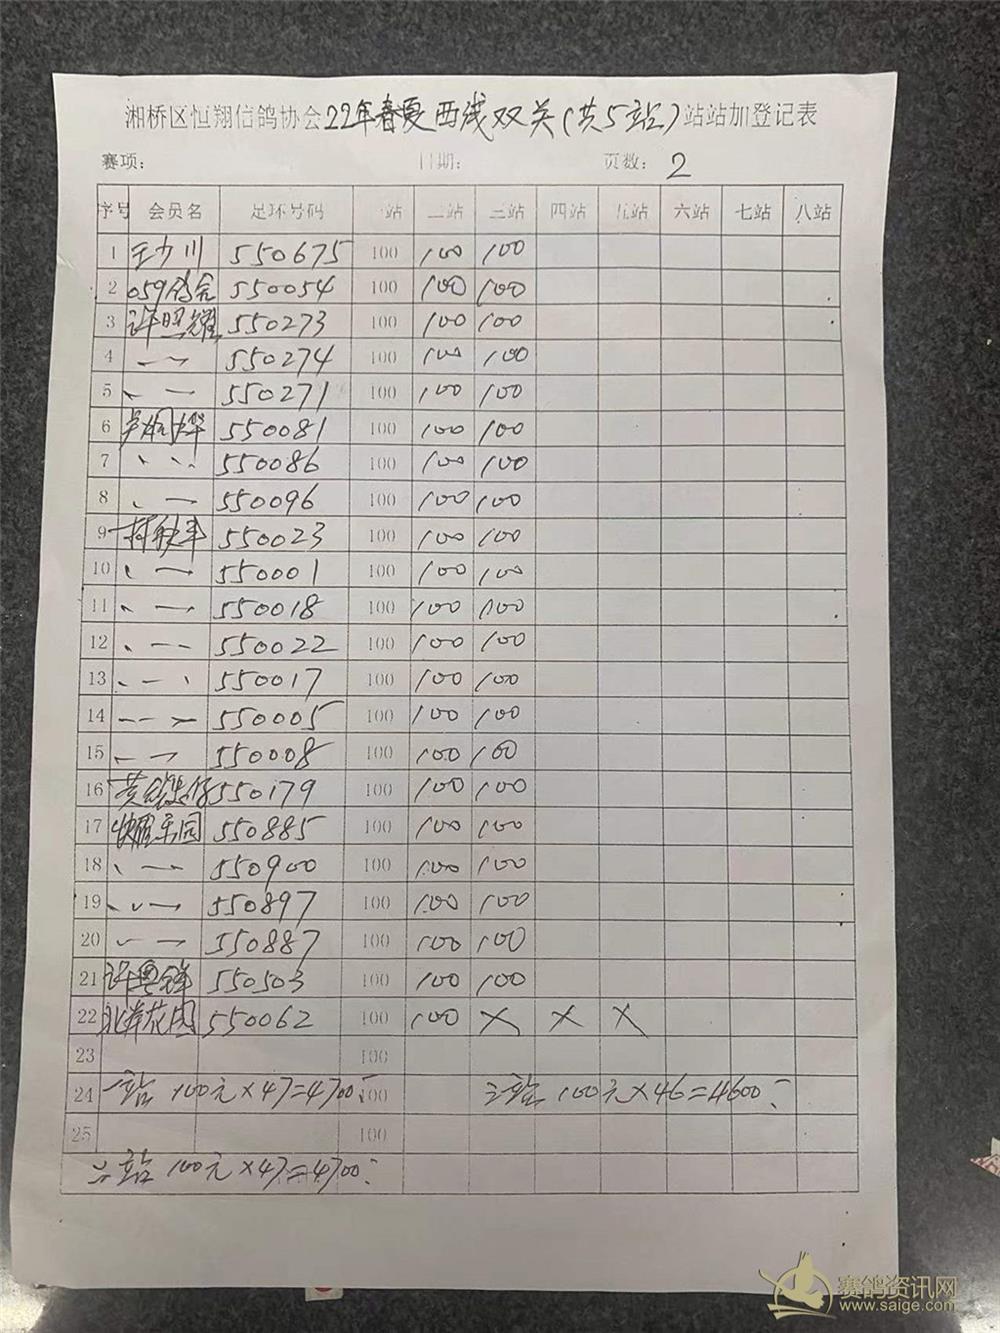 湘桥区恒翔信鸽协会22年春夏西线双关(共5站)站站加登记表
赛项: 日期: 页数: 2
序号 会员名 足环号码 一站 二站 三站 四站 五站 六站 七站 八站
1 王少川 550675 100 100 100
2 059鸽舍 550054 100 100 100
3 许照耀 550273 100 100 100
4 550274 100 100 100
5 550271 100 100 100
6 550081 100 100 100
7 550086 100 100 100
8 550096 100 100 100
9 550023 100 100 100
10 550001 100 100 100
11 550018 100 100 100
12 550022 100 100 100
13 550017 100 100 100
14 550005 100 100 100
15 550008 100 100 100
16 550179 100 100 100
17 乐园 550885 100 100 100
18 550900 100 100 100
19 550897 100 100 100
20 550887 100 100 100
21 550503 100 100 100
22 北岸花园 550062 100 100 × × ×
23 100
24 一站 100元×47=4700 100 三站 100元×46=4600
25 100
二站 100元×47=4700
赛鸽资讯网
www.saige.com